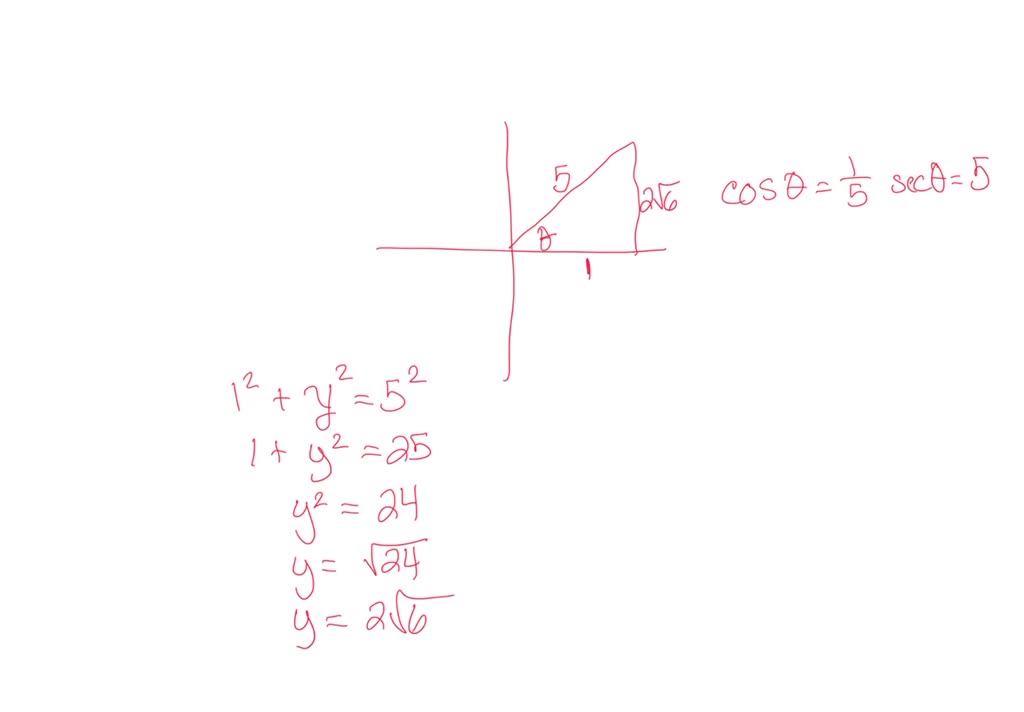 5
2√6
cos θ = 1/5 sec θ = 5
θ
1
1² + y² = 5²
1 + y² = 25
y² = 24
y = √24
y = 2√6